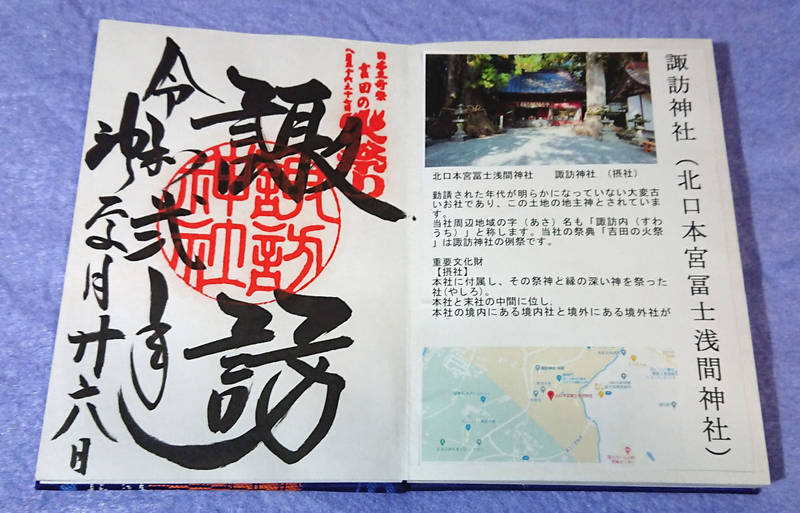 諏訪神社（北口本宮冨士浅間神社）
北口本宮冨士浅間神社　　諏訪神社　（摂社）
勧請された年代が明らかになっていない大変古
いお社であり、この土地の地主神とされていま
す。
当社周辺地域の字（あさ）名も「諏訪内（すわ
うち）」と称します。当社の祭典「吉田の火祭
」は諏訪神社の例祭です。
重要文化財
【摂社】
本社に付属し、その祭神と縁の深い神を祭った
社(やしろ)。
本社と末社の中間に位し、
本社の境内にある境内社と境外にある境外社が
日本三奇祭
吉田の火祭り
諏訪
諏訪神社
令和弐年
月廿六日